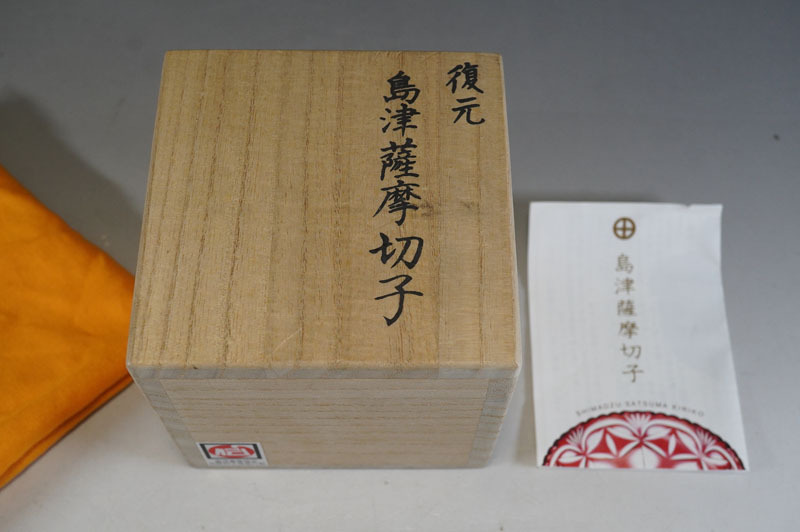 復元
島津薩摩切子
島津薩摩切子
SHIMADZU SATSUMA KIRIKO